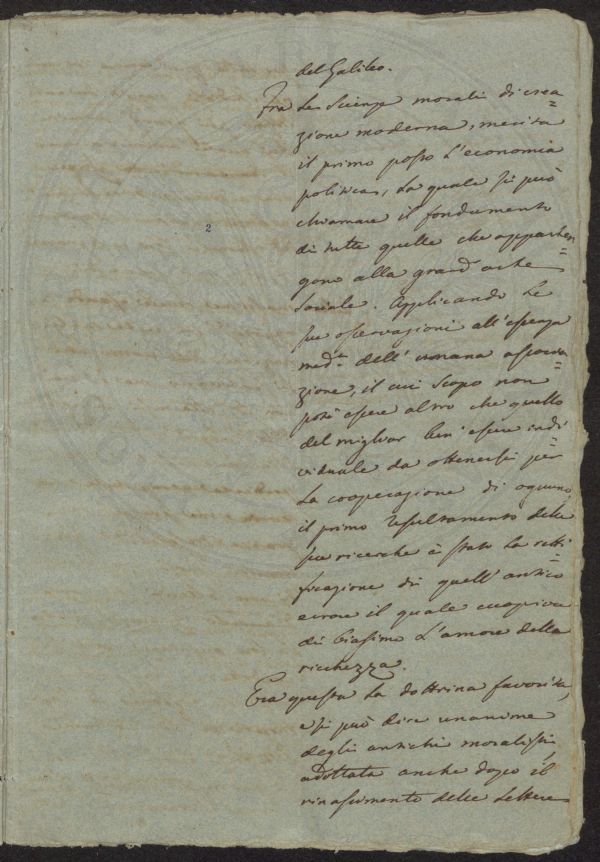 del Galileo.
Fra le Scienze morali di crea=
zione moderna, merita
il primo posto l'economia
politica, la quale si può
chiamare il fondamento
2
di tutte quelle che apparten=
gono alla grand'arte
Sociale. Applicando le
sue osservazioni all'essenza
med.ma dell'umana associa=
zione, il cui scopo non
potè essere altro che quello
del miglior ben'essere indi=
viduale da ottenersi per
la cooperazione di ognuno,
il primo resultamento delle
sue ricerche è stato la retti=
ficazione di quell'antico
errore il quale cuopriva
di biasimo l'amore della
ricchezza.
Era questa la dottrina favorita,
e si può dire unanime
degli antichi moralisti
adottata anche dopo il
rinascimento delle Lettere